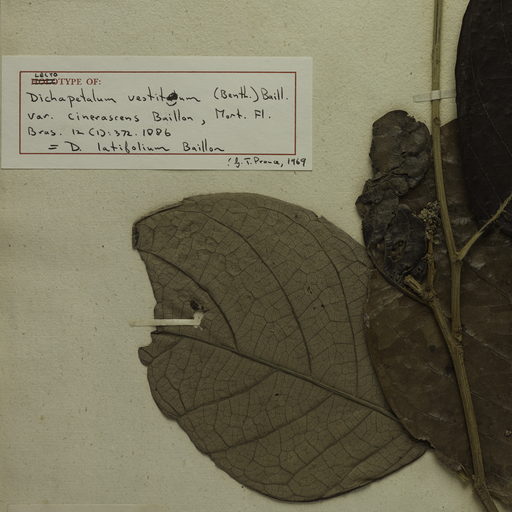 LECTO
TYPE OF:
Dichapetalum vestitum (Benth.) Baill.
var. cinerascens Baillon, Mart. Fl.
Bras. 12 (1): 372. 1886
= D. latifolium Baillon
G. T. Prance, 1969